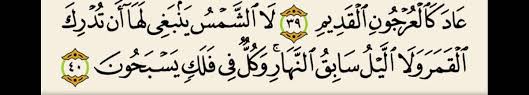 عَادَ كَٱلْعُرْجُونِ ٱلْقَدِيمِ ٣٩ لَا ٱلشَّمْسُ يَنۢبَغِى لَهَآ أَن تُدْرِكَ
ٱلْقَمَرَ وَلَا ٱلَّيْلُ سَابِقُ ٱلنَّهَارِ ۚ وَكُلٌّ فِى فَلَكٍ يَسْبَحُونَ ٤٠